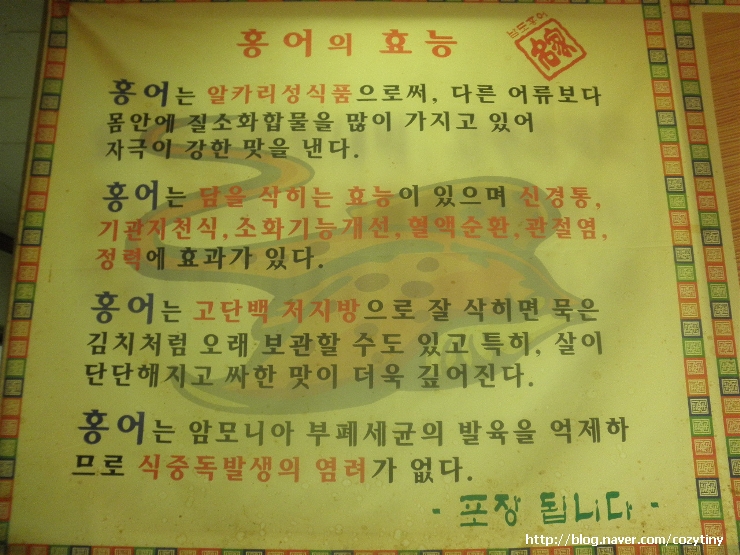 홍어의 효능
홍어는 알카리성식품으로써, 다른 어류보다
몸안에 질소화합물을 많이 가지고 있어
자극이 강한 맛을 낸다.
홍어는 담을 삭히는 효능이 있으며 신경통,
기관지천식, 소화기능개선, 혈액순환, 관절염,
정력에 효과가 있다.
홍어는 고단백 저지방으로 잘 삭히면 묵은
김치처럼 오래 보관할 수도 있고 특히, 살이
단단해지고 싸한 맛이 더욱 깊어진다.
홍어는 암모니아 부폐세균의 발육을 억제하
므로 식중독발생의 염려가 없다.
- 포장 됩니다 -
http://blog.naver.com/cozytiny